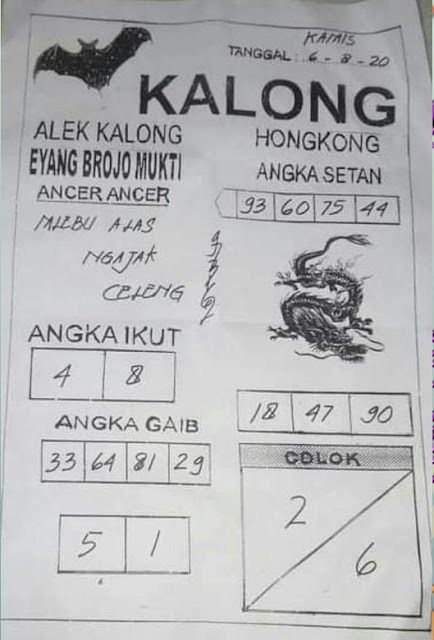 KAMIS
TANGGAL : 6 - 8 - 20
KALONG
ALEK KALONG
EYANG BROJO MUKTI
ANCER ANCER
MLEBU ALAS
NGAJAK
CELENG
HONGKONG
ANGKA SETAN
93 60 75 44
ANGKA IKUT
4 8
18 47 90
ANGKA GAIB
33 64 81 29
5 1
COLOK
2
6